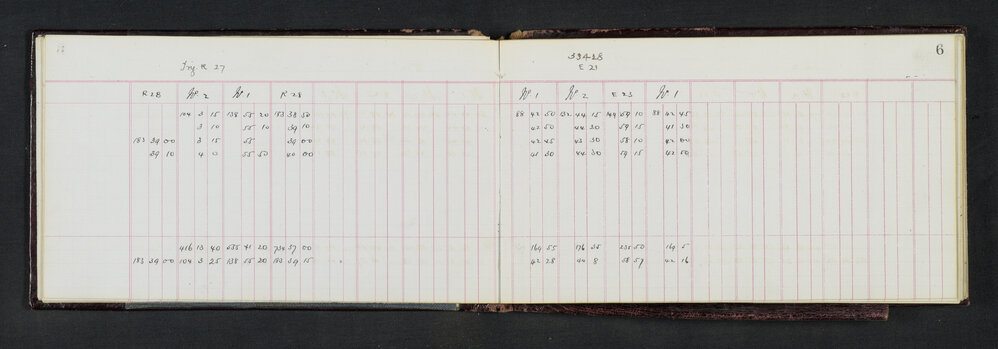 6
Trg R 27
33428
E 21
R 28 W 2 W 1 R 28
W 1 W 2 E 23 W 1
104 3 15 138 55 20 183 38 50
88 42 50 132 44 15 149 59 10 88 42 45
3 10 55 10 39 10
42 50 44 30 59 15 41 30
183 39 00 3 15 55 39 00
42 45 43 30 58 10 42 00
39 10 4 0 55 50 40 00
41 30 44 30 59 15 42 50
416 13 40 535 41 20 734 37 00
169 55 176 35 235 50 169 5
183 39 00 104 3 25 138 55 20 183 39 15
42 28 44 8 58 57 42 16